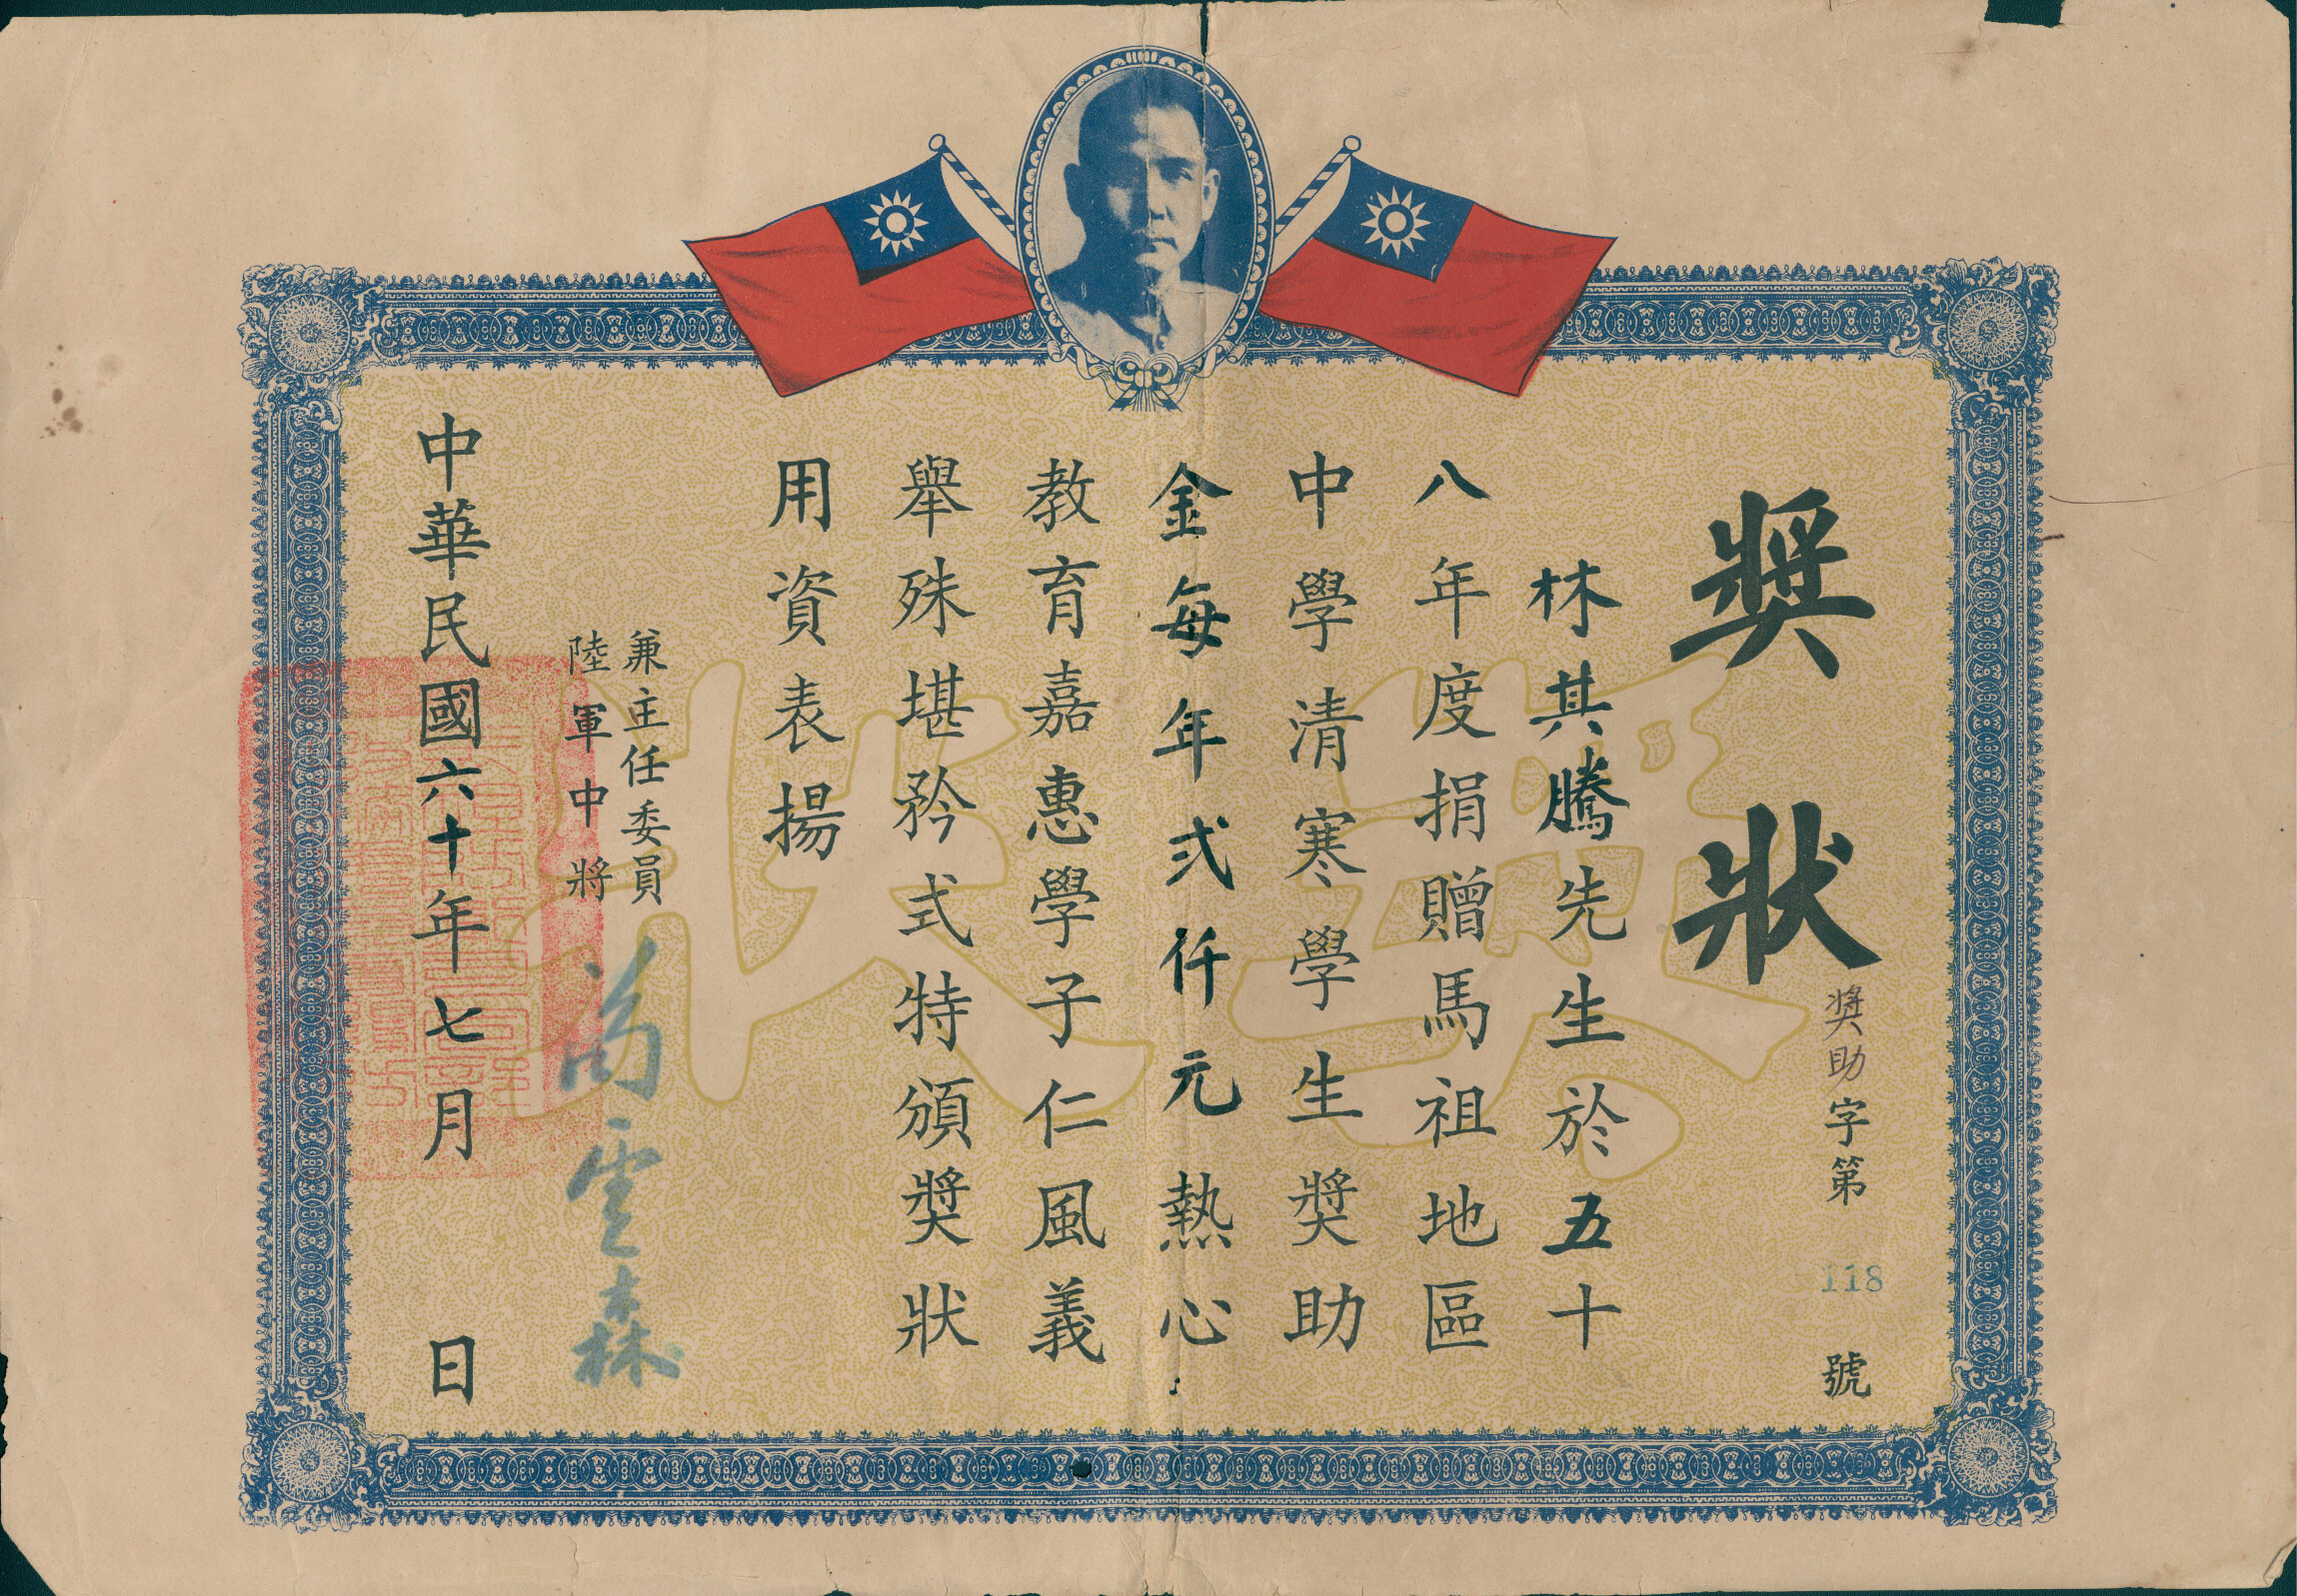 獎狀
獎助字第118號
林其騰先生於五十
八年度捐贈馬祖地區
中學清寒學生獎助
金每年弍仟元熱心
教育嘉惠學子仁風義
舉殊堪矜式特頒獎狀
用資表揚
兼主任委員
陸軍中將
雲森
中華民國六十年七月 日
獎狀